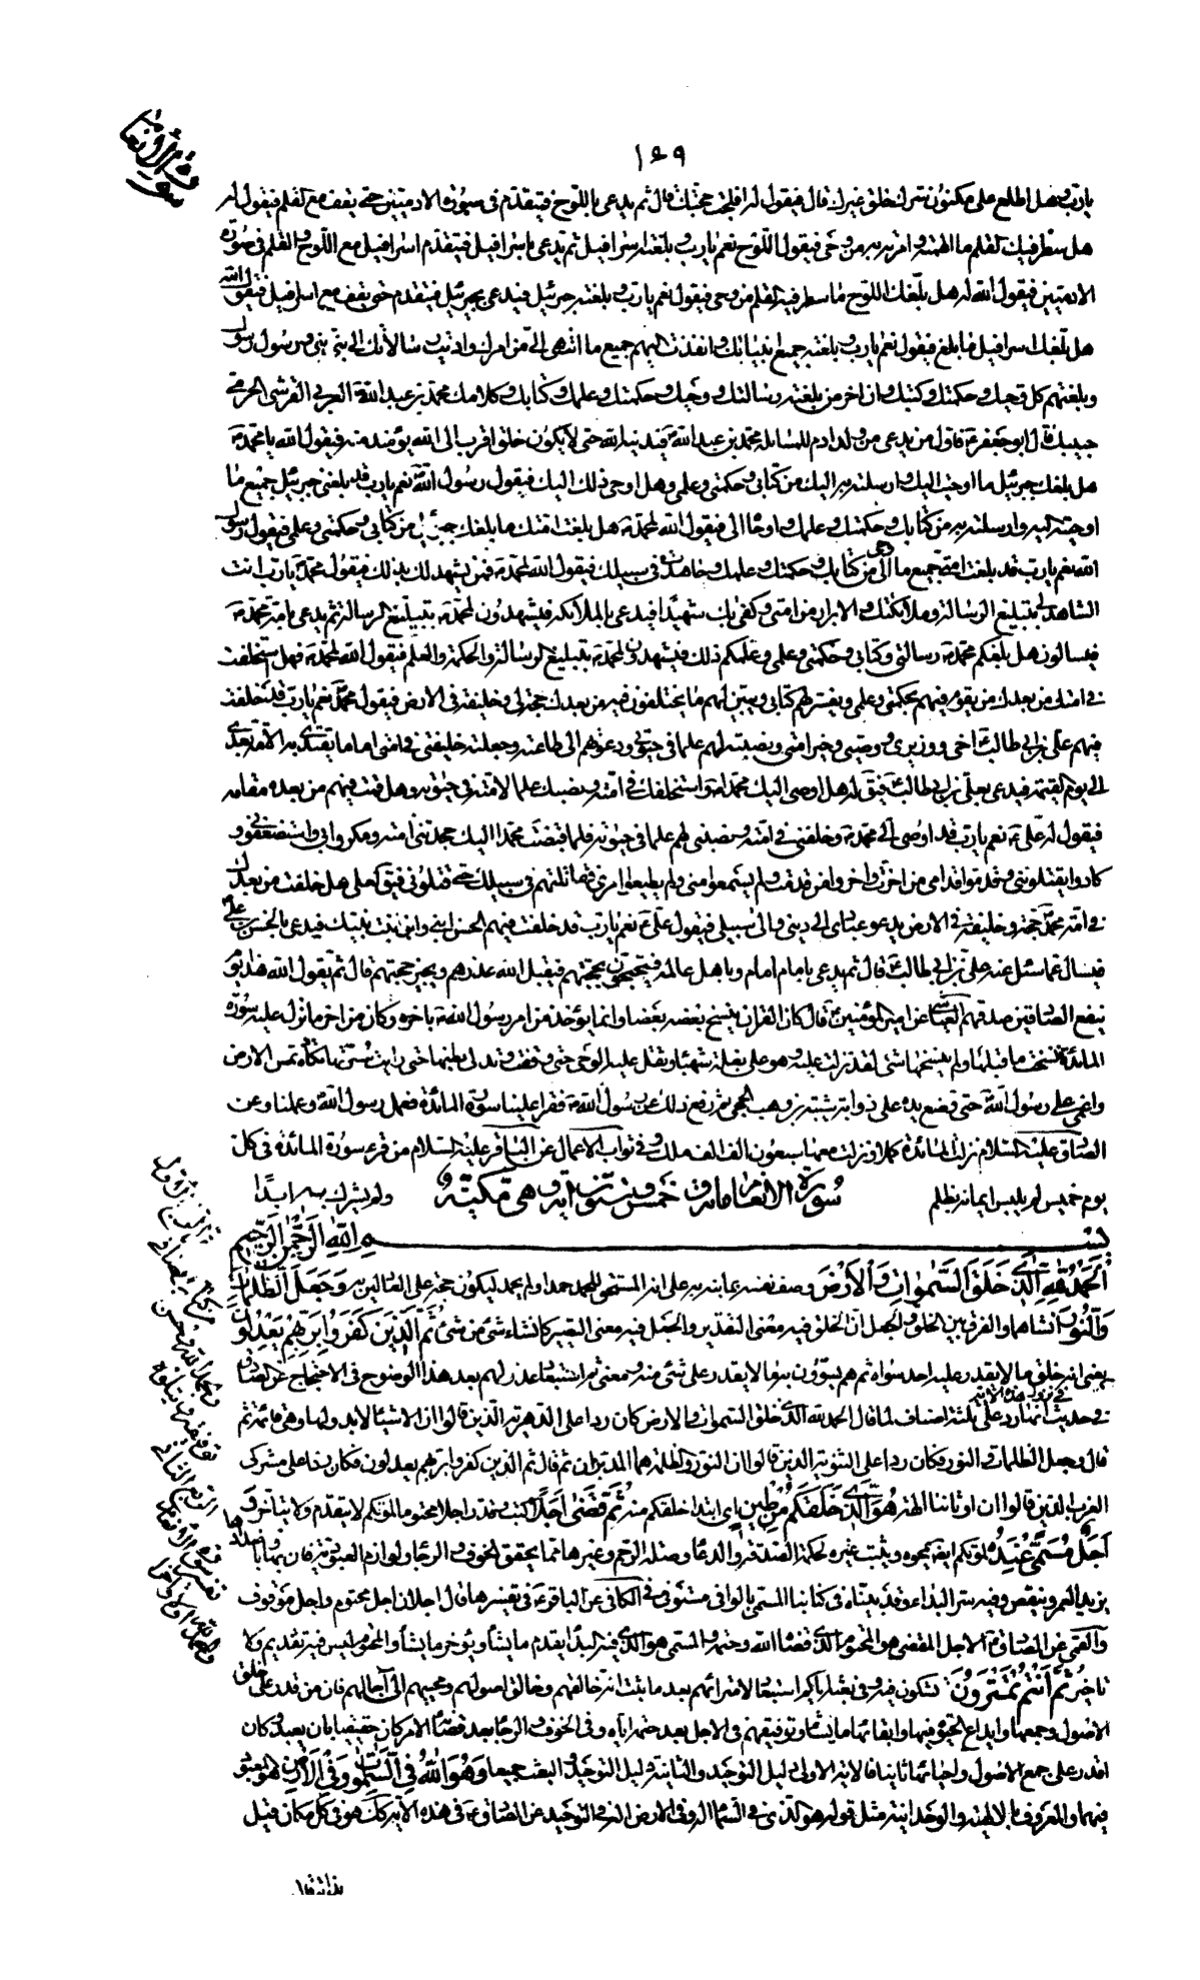 ١٤٩
يا رب وهل اطلع على مكنون سرك خلق غيرك قال فيقول له افلجت حجتك قال ثم يدعى باللوح فيتقدم فى صورة الادميين حتى يقف مع القلم فيقول له
هل سطر فيك القلم ما الهمته وامرته به من وحى فيقول اللوح نعم يا رب وبلغته اسرافيل ثم يدعى باسرافيل فيتقدم اسرافيل مع اللوح والقلم فى صورة
الادميين فيقول الله له هل بلغك اللوح ما سطر فيه القلم من وحى فيقول نعم يا رب وبلغته جبرئيل فيدعى بجبرئيل فيتقدم حتى يقف مع اسرافيل فيقول الله
هل بلغك اسرافيل ما بلغ فيقول نعم يا رب وبلغته جميع انبيائك وانفذت اليهم جميع ما انتهى الى من امرك واديت رسالاتك الى نبى نبى ورسول رسول
وبلغتهم كل وحيك وحكمتك وكتبك وان اخر من بلغته رسالتك ووحيك وحكمتك وعلمك وكتابك وكلامك محمد بن عبد الله العربى القرشى الحرمى
حبيبك قال ابو جعفر ع فاول من يدعى من ولد ادم للمسائلة محمد بن عبد الله ص فيدنيه الله حتى لا يكون خلق اقرب الى الله يومئذ منه فيقول الله يا محمد ص
هل بلغك جبرئيل ما اوحيت اليك وارسلته به اليك من كتابى وحكمتى وعلمى وهل اوحى ذلك اليك فيقول رسول الله ص نعم يا رب قد بلغنى جبرئيل جميع ما
اوحيته اليه وارسلته به من كتابك وحكمتك وعلمك واوحاه الى فيقول الله لمحمد ص هل بلغت امتك ما بلغك جبرئيل من كتابى وحكمتى وعلمى فيقول رسول
الله نعم يا رب قد بلغت امتى جميع ما اوحى الى من كتابك وحكمتك وعلمك وجاهدت فى سبيلك فيقول الله لمحمد ص فمن يشهد لك بذلك فيقول محمد ص يا رب انت
الشاهد لى بتبليغ الرسالة وملائكتك والابرار من امتى وكفى بك شهيدا فيدعى بالملائكة فيشهدون لمحمد ص بتبليغ الرسالة ثم يدعى بامة محمد ص
فيسالون هل بلغكم محمد ص رسالتى وكتابى وحكمتى وعلمى وعلمكم ذلك فيشهدون لمحمد ص بتبليغ الرسالة والحكمة والعلم فيقول الله لمحمد ص فهل استخلفت
فى امتك من بعدك من يقوم فيهم بحكمتى وعلمى ويفسر لهم كتابى ويبين لهم ما يختلفون فيه من بعدك حجة لى وخليفة فى الارض فيقول محمد ص نعم يا رب قد خلفت
فيهم على بن ابى طالب ع اخى ووزيرى ووصيى وخير امتى ونصبته لهم علما فى حيوتى ودعوتهم الى طاعته وجعلته خليفتى فى امتى اماما يقتدى به الامة بعدى
الى يوم القيمة فيدعى بعلى بن ابى طالب ع فيق له هل اوصى اليك محمد ص واستخلفك فى امته ونصبك علما لامته فى حيوته وهل قمت فيهم من بعده مقامه
فيقول له على ع نعم يا رب قد اوصى الى محمد ص وخلفنى فى امته ونصبنى لهم علما فى حيوته فلما قبضت محمدا اليك جحدتنى امته ومكروا بى واستضعفونى و
كادوا يقتلوننى وقدموا قدامى من اخرت واخروا من قدمت ولم يسمعوا منى ولم يطيعوا امرى فقاتلتهم فى سبيلك حتى قتلونى فيق لعلى هل خلفت من بعدك
فى امة محمد ص حجة وخليفة فى الارض يدعو عبادى الى دينى والى سبيلى فيقول على ع نعم يا رب قد خلفت فيهم الحسن ابنى وابن بنت نبيك فيدعى بالحسن بن على ع
فيسال عما سئل عنه على بن ابى طالب ع قال ثم يدعى بامام امام وباهل عالمه فيحتجون بحجتهم فيقبل الله عذرهم ويجيز حجتهم قال ثم يقول الله هذا يوم
ينفع الصادقين صدقهم العياشى عن امير المؤمنين ع قال كان القران ينسخ بعضه بعضا وانما يؤخذ من امر رسول الله ص باخره وكان من اخر ما نزل عليه سورة
المائدة نسخت ما قبلها ولم ينسخها شئ لقد نزلت عليه وهو على بغلة شهباء وثقل عليه الوحى حتى وقفت وتدلى بطنها حتى رايت سرتها تكاد تمس الارض
واغمى على رسول الله ص حتى وضع يده على ذوابة شيبة بن وهب الجمحى ثم رفع ذلك عن رسول الله ص فقرا علينا سورة المائدة فعمل رسول الله ص وعملنا وعن
الصادق عليه السلام نزلت المائدة كملا ونزلت معها سبعون الف الف ملك وفى ثواب الاعمال عن الباقر عليه السلام من قرء سورة المائدة فى كل
يوم خميس لم يلبس ايمانه بظلم ولم يشرك به ابدا
سورة الانعام مائة وخمس وستون اية وهى مكية
بسم الله الرحمن الرحيم
اَلْحَمْدُ لِلّٰهِ الَّذِى خَلَقَ السَّمٰوَاتِ وَالْاَرْضَ وصف نفسه بما نبه به على انه المستحق للحمد حمد او لم يحمد ليكون حجة على العادلين به وَجَعَلَ الظُّلُمَاتِ
وَالنُّورَ انشاهما والفرق بين الخلق والجعل ان الخلق فيه معنى التقدير والجعل فيه معنى التصيير كانشاء شئ من شئ ثُمَّ الَّذِينَ كَفَرُوا بِرَبِّهِمْ يَعْدِلُونَ
يعنى انه خلق ما لا يقدر عليه احد سواه ثم هم يسوون به ما لا يقدر على شئ منه ومعنى ثم استبعاد عدولهم بعد هذا الوضوح فى الاحتجاج عن الصادق
فى نزول هذه الاية
فى حديث انها رد على ثلثة اصناف لما قال الحمد لله الذى خلق السموات والارض كان ردا على الدهرية الذين قالوا ان الاشياء لا بدو لها وهى قائمة ثم
قال وجعل الظلمات والنور فكان ردا على الثنوية الذين قالوا ان النور والظلمة هما المدبران ثم قال ثم الذين كفروا بربهم يعدلون فكان ردا على مشركى
العرب الذين قالوا ان اوثاننا الهة هُوَ الَّذِى خَلَقَكُمْ مِنْ طِينٍ اى ابتدا خلقكم منه ثُمَّ قَضٰى اَجَلًا كتب وقدر اجلا محتوما لموتكم لا يتقدم ولا يتاخر وَ
اَجَلٌ مُسَمًّى عِنْدَهُ لموتكم ايضا يمحوه ويثبت غيره لحكمة الصدقة والدعاء وصلة الرحم وغيرها مما يحقق الخوف والرجاء ولوازم العبودية فان بها وباضدادها
يزيد العمر وينقص وفيه سر البداء وقد بيناه فى كتابنا المسمى بالوافى مستوفى فى الكافى عن الباقر ع فى تفسيرها قال اجلان اجل محتوم واجل موقوف
والقمى عن الصادق ع الاجل المقضى هو المحتوم الذى قضاه الله وحتمه والمسمى هو الذى فيه البداء يقدم ما يشاء ويؤخر ما يشاء والمحتوم ليس فيه تقديم ولا
تاخير ثُمَّ اَنْتُمْ تَمْتَرُونَ تشكون فيه وفى بعثه اياكم استبعاد لامترائهم بعد ما ثبت انه خالقهم وخالق اصولهم ومحييهم الى آجالهم فان من قدر على خلق
الاصول وجمعها وابداع الحيوة فيها وابقائها ما يشاء وتوفيقهم فى الاجل بعد حتم اياه وفى الخوف والرجاء بعد قضاء الامر كان حقيقيا بان يعبد وكان
اقدر على جمع الاصول واحيائها ثانيا فالاية الاولى دليل التوحيد والثانية دليل التوحيد والبعث جميعا وَهُوَ اللّٰهُ فِى السَّمٰوَاتِ وَفِى الْاَرْضِ هو المعبود
فيهما والمعروف بالالهية والوحدانية مثل قوله هو الذى فى السماء اله وفى الارض اله فى التوحيد عن الصادق ع فى هذه الاية كك هو فى كل مكان قيل